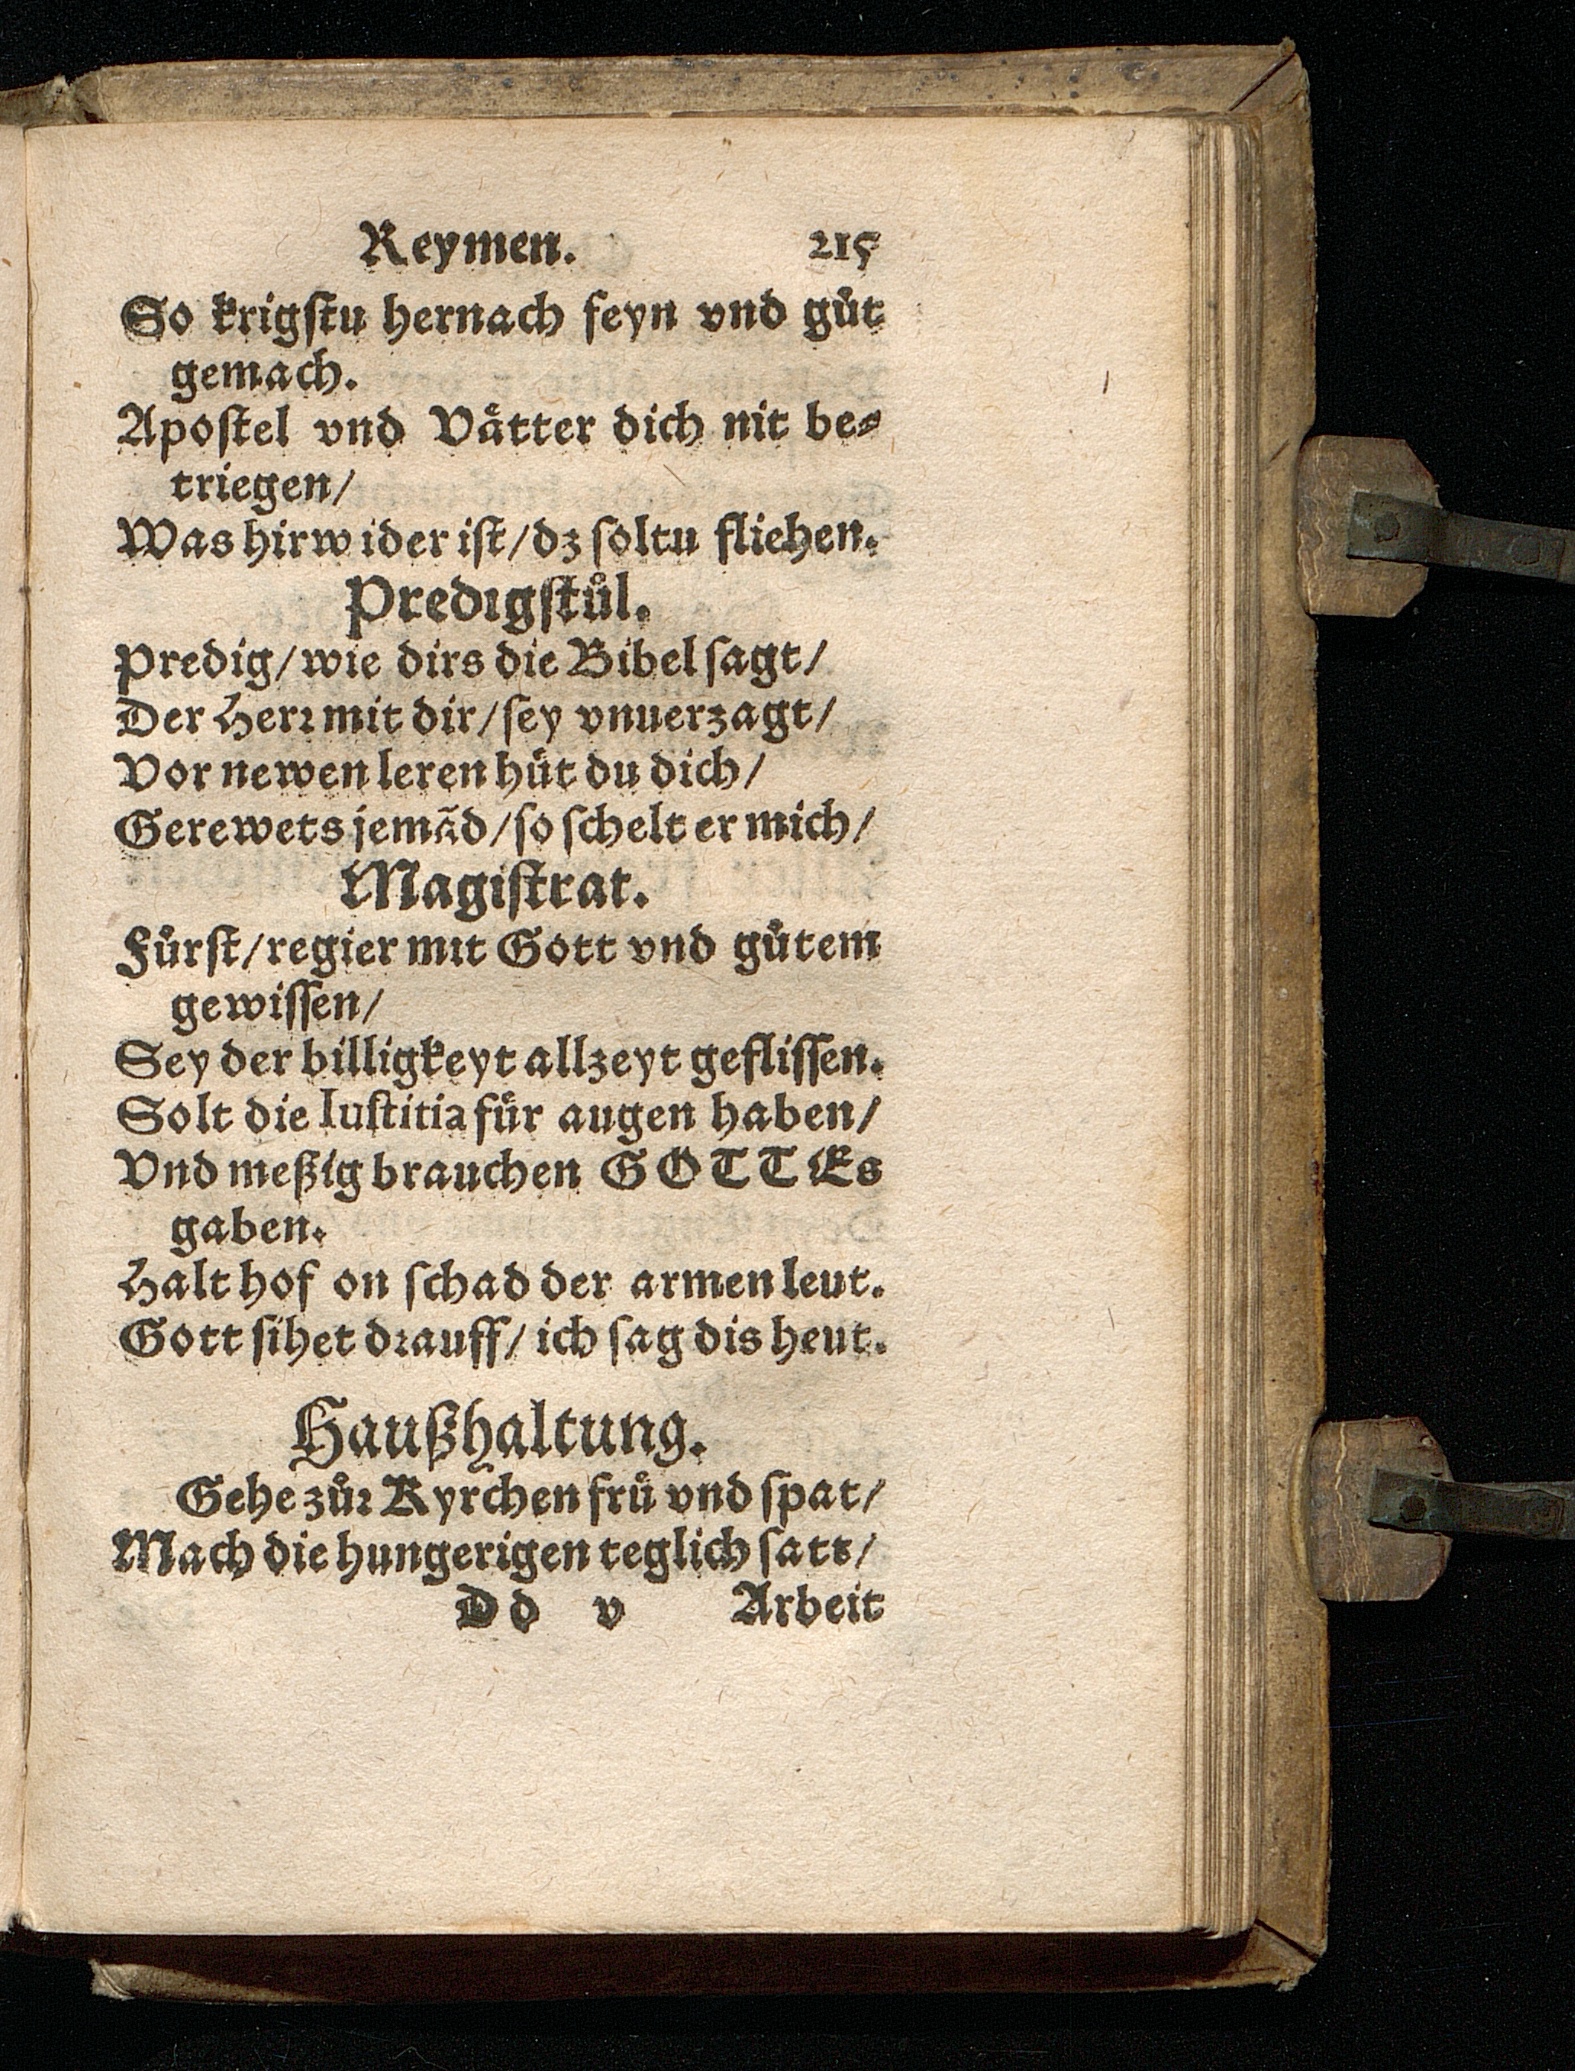 Reymen. 215
So krigſtu hernach feyn vnd gůt
gemach.
Apoſtel vnd Vaͤtter dich nit be⸗
triegen/
Was hirwider iſt/dz ſoltu fliehen.
Predigſtůl.
Predig/wie dirs die Bibel ſagt/
Der Herꝛ mit dir/ſey vnuerzagt/
Vor newen leren huͤt du dich/
Gerewets jemãd/ſo ſchelt er mich/
Magiſtrat.
Fuͤrſt/regier mit Gott vnd gůtem
gewiſſen/
Sey der billigkeyt allzeyt gefliſſen.
Solt die Iuſtitia fuͤr augen haben/
Vnd meßig brauchen GOTTEs
gaben.
Halt hof on ſchad der armen leut.
Gott ſihet dꝛauff/ ich ſag dis heut.
Haußhaltung.
Gehe zůꝛ Kyrchen frů vnd ſpat/
Mach die hungerigen teglich ſatt/
Dd v Arbeit